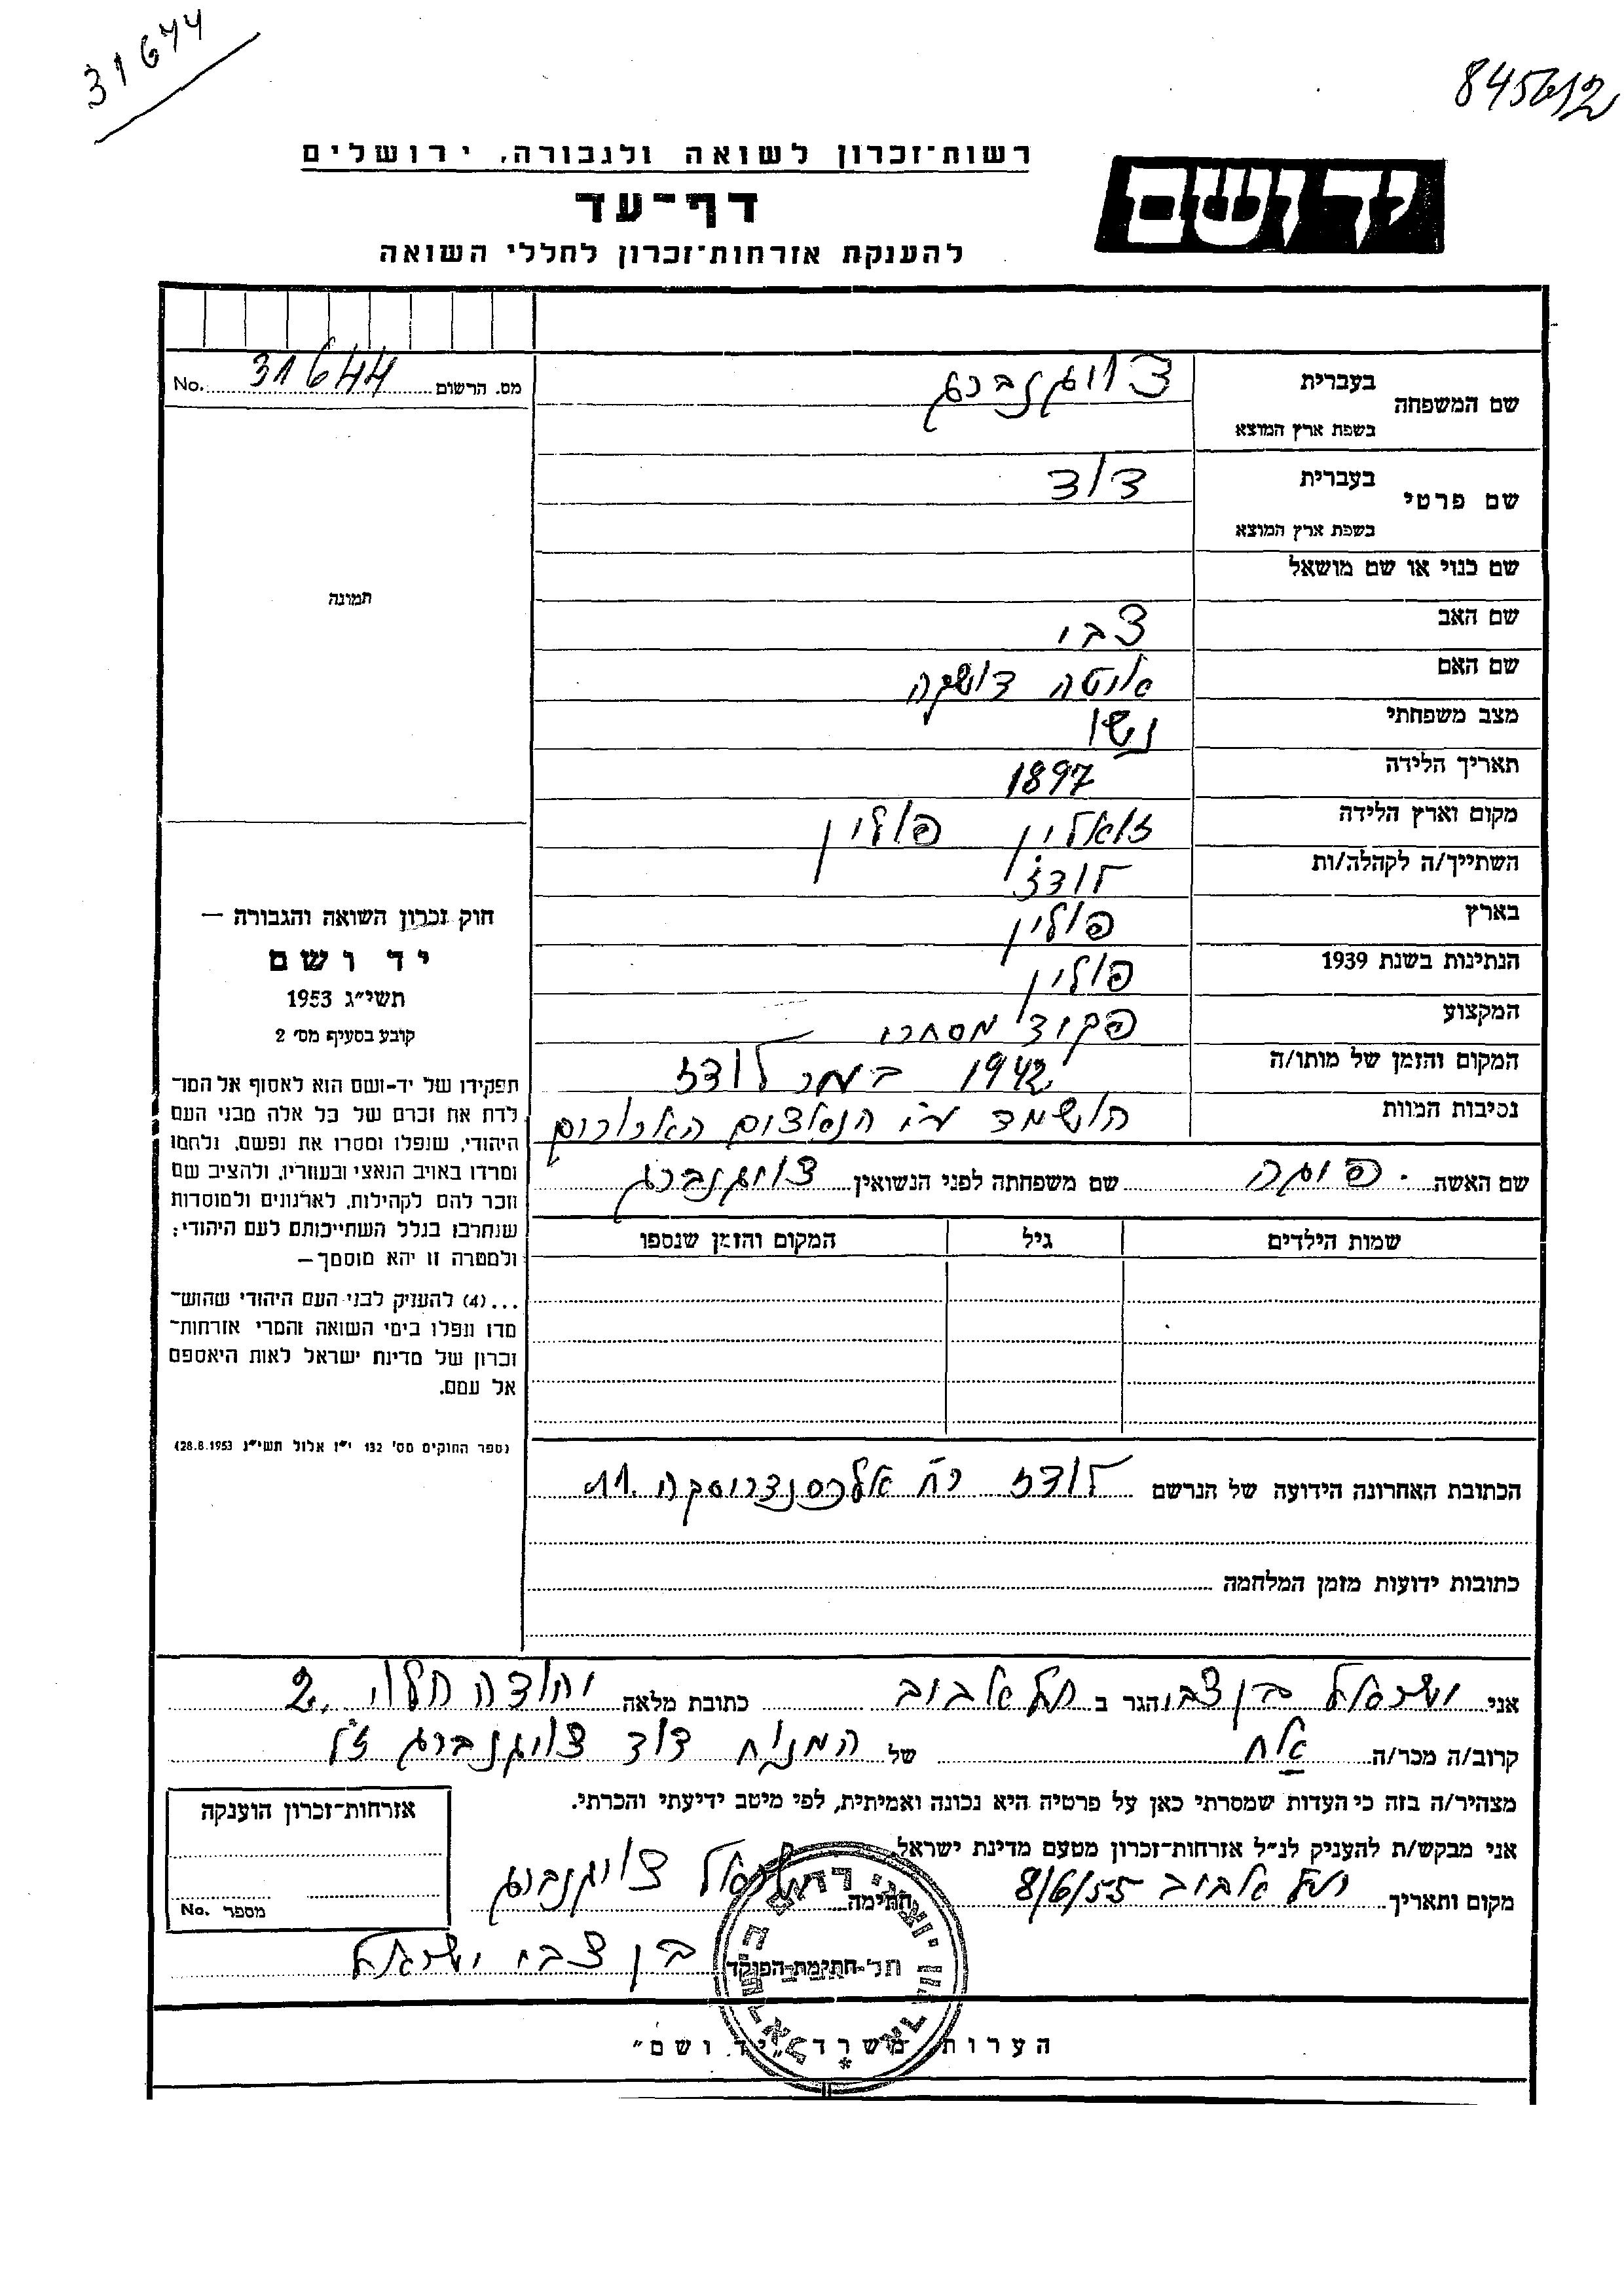 31644
845612
רשות־זכרון לשואה ולגבורה, ירושלים
יד ושם
דף־עד
להענקת אזרחות־זכרון לחללי השואה
מס. הרשום 31644 No.
שם המשפחה בעברית צויגנברג
בשפת ארץ המוצא
שם פרטי בעברית דוד
בשפת ארץ המוצא
שם כנוי או שם מושאל
תמונה
שם האב צבי
שם האם דושקה
מצב משפחתי נשוי
תאריך הלידה 1897
מקום וארץ הלידה פולין
השתייך/ה לקהלה/ות לודז'
בארץ פולין
הנתינות בשנת 1939 פולין
המקצוע פקיד מסחרי
המקום והזמן של מותו/ה 1942 לודז
נסיבות המוות הושמד ע"י הנאצים הארורים
שם האשה שם משפחתה לפני הנשואין צויגנברג
שמות הילדים גיל המקום והזמן שנספו
הכתובת האחרונה הידועה של הנרשם לודז רח' אלכסנדרוסקה 11.
כתובות ידועות מזמן המלחמה
חוק זכרון השואה והגבורה —
יד ושם
תשי"ג 1953
קובע בסעיף מס' 2
תפקידו של יד-ושם הוא לאסוף אל המו־
לדת את זכרם של כל אלה מבני העם
היהודי, שנפלו ומסרו את נפשם, נלחמו
ומרדו באויב הנאצי ובעוזריו, ולהציב שם
וזכר להם לקהילות, לארגונים ולמוסדות
שנחרבו בגלל השתייכותם לעם היהודי;
ולמטרה זו יהא מוסמך—
...(4) להעניק לבני העם היהודי שהוש־
מדו ונפלו בימי השואה והמרי אזרחות־
זכרון של מדינת ישראל לאות היאספם
אל עמם.
(ספר החוקים מס' 132 י"ז אלול תשי"ג 28.8.1953)
אני ישראל בן צבי הגר ב תל אביב כתובת מלאה יהודה הלוי 2.
קרוב/ה מכר/ה אח של המנוח דוד צויגנברג ז"ל
מצהיר/ה בזה כי העדות שמסרתי כאן על פרטיה היא נכונה ואמיתית, לפי מיטב ידיעתי והכרתי.
אני מבקש/ת להעניק לנ"ל אזרחות־זכרון מטעם מדינת ישראל.
מקום ותאריך תל אביב 8/6/55 חתימה ישראל צויגנברג
חתימת הפוקד בן צבי ישראל
אזרחות־זכרון הוענקה
מספר No.
הערות משרד "יד ושם"